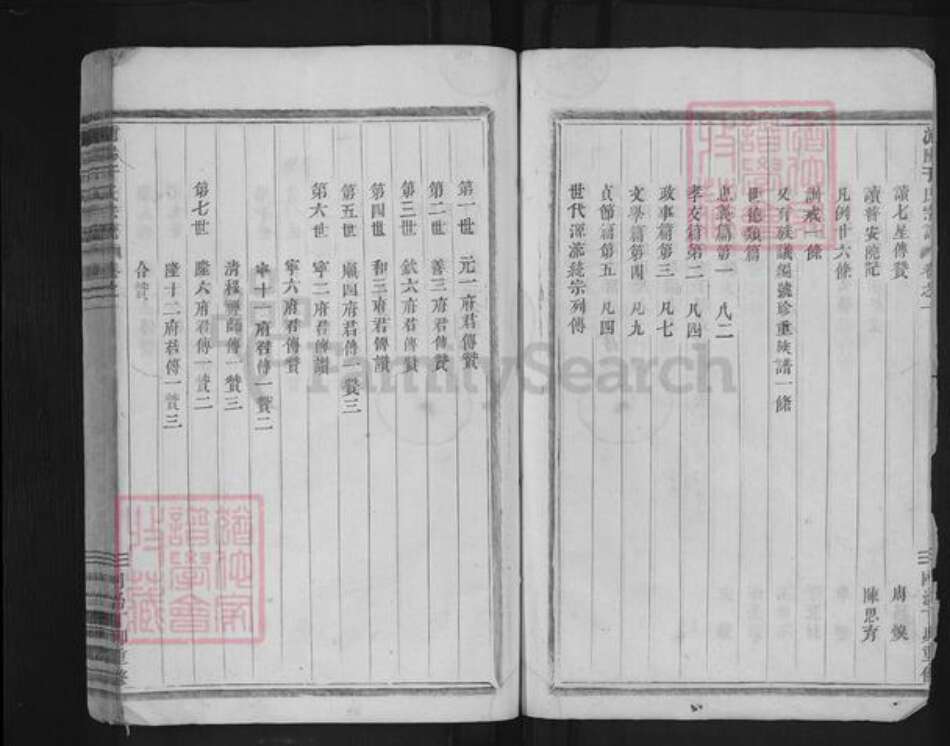 讀七星傳贊
讀普安院記 陳思齊
凡例廿六條
訓戒一條
又有族議編號珍重族譜一條
世德類篇
忠義篇第一 凡二
孝友篇第二 凡四
政事篇第三 凡七
文學篇第四 凡九
貞節篇第五 凡四
世代源流總宗列傳
第一世 元一府君傳贊
第二世 善三府君傳贊
第三世 欽六府君傳贊
第四世 和三府君傳讚
第五世 順四府君傳一贊三
第六世 寧二府君傳讚
寧六府君傳贊
寧十一府君傳一贊二
清極禪師傳一贊三
第七世 隆六府君傳一贊二
隆十二府君傳一贊三
合贊
FamilySearch